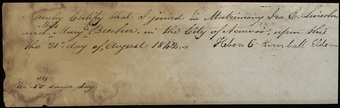 I hereby Certify that I joined in Matrimony Ira E. Lincoln
and Mary Beecher, in the City of Nauvoo, upon this
the 21st day of August 1842.
Heber C. Kimball Elder
same day